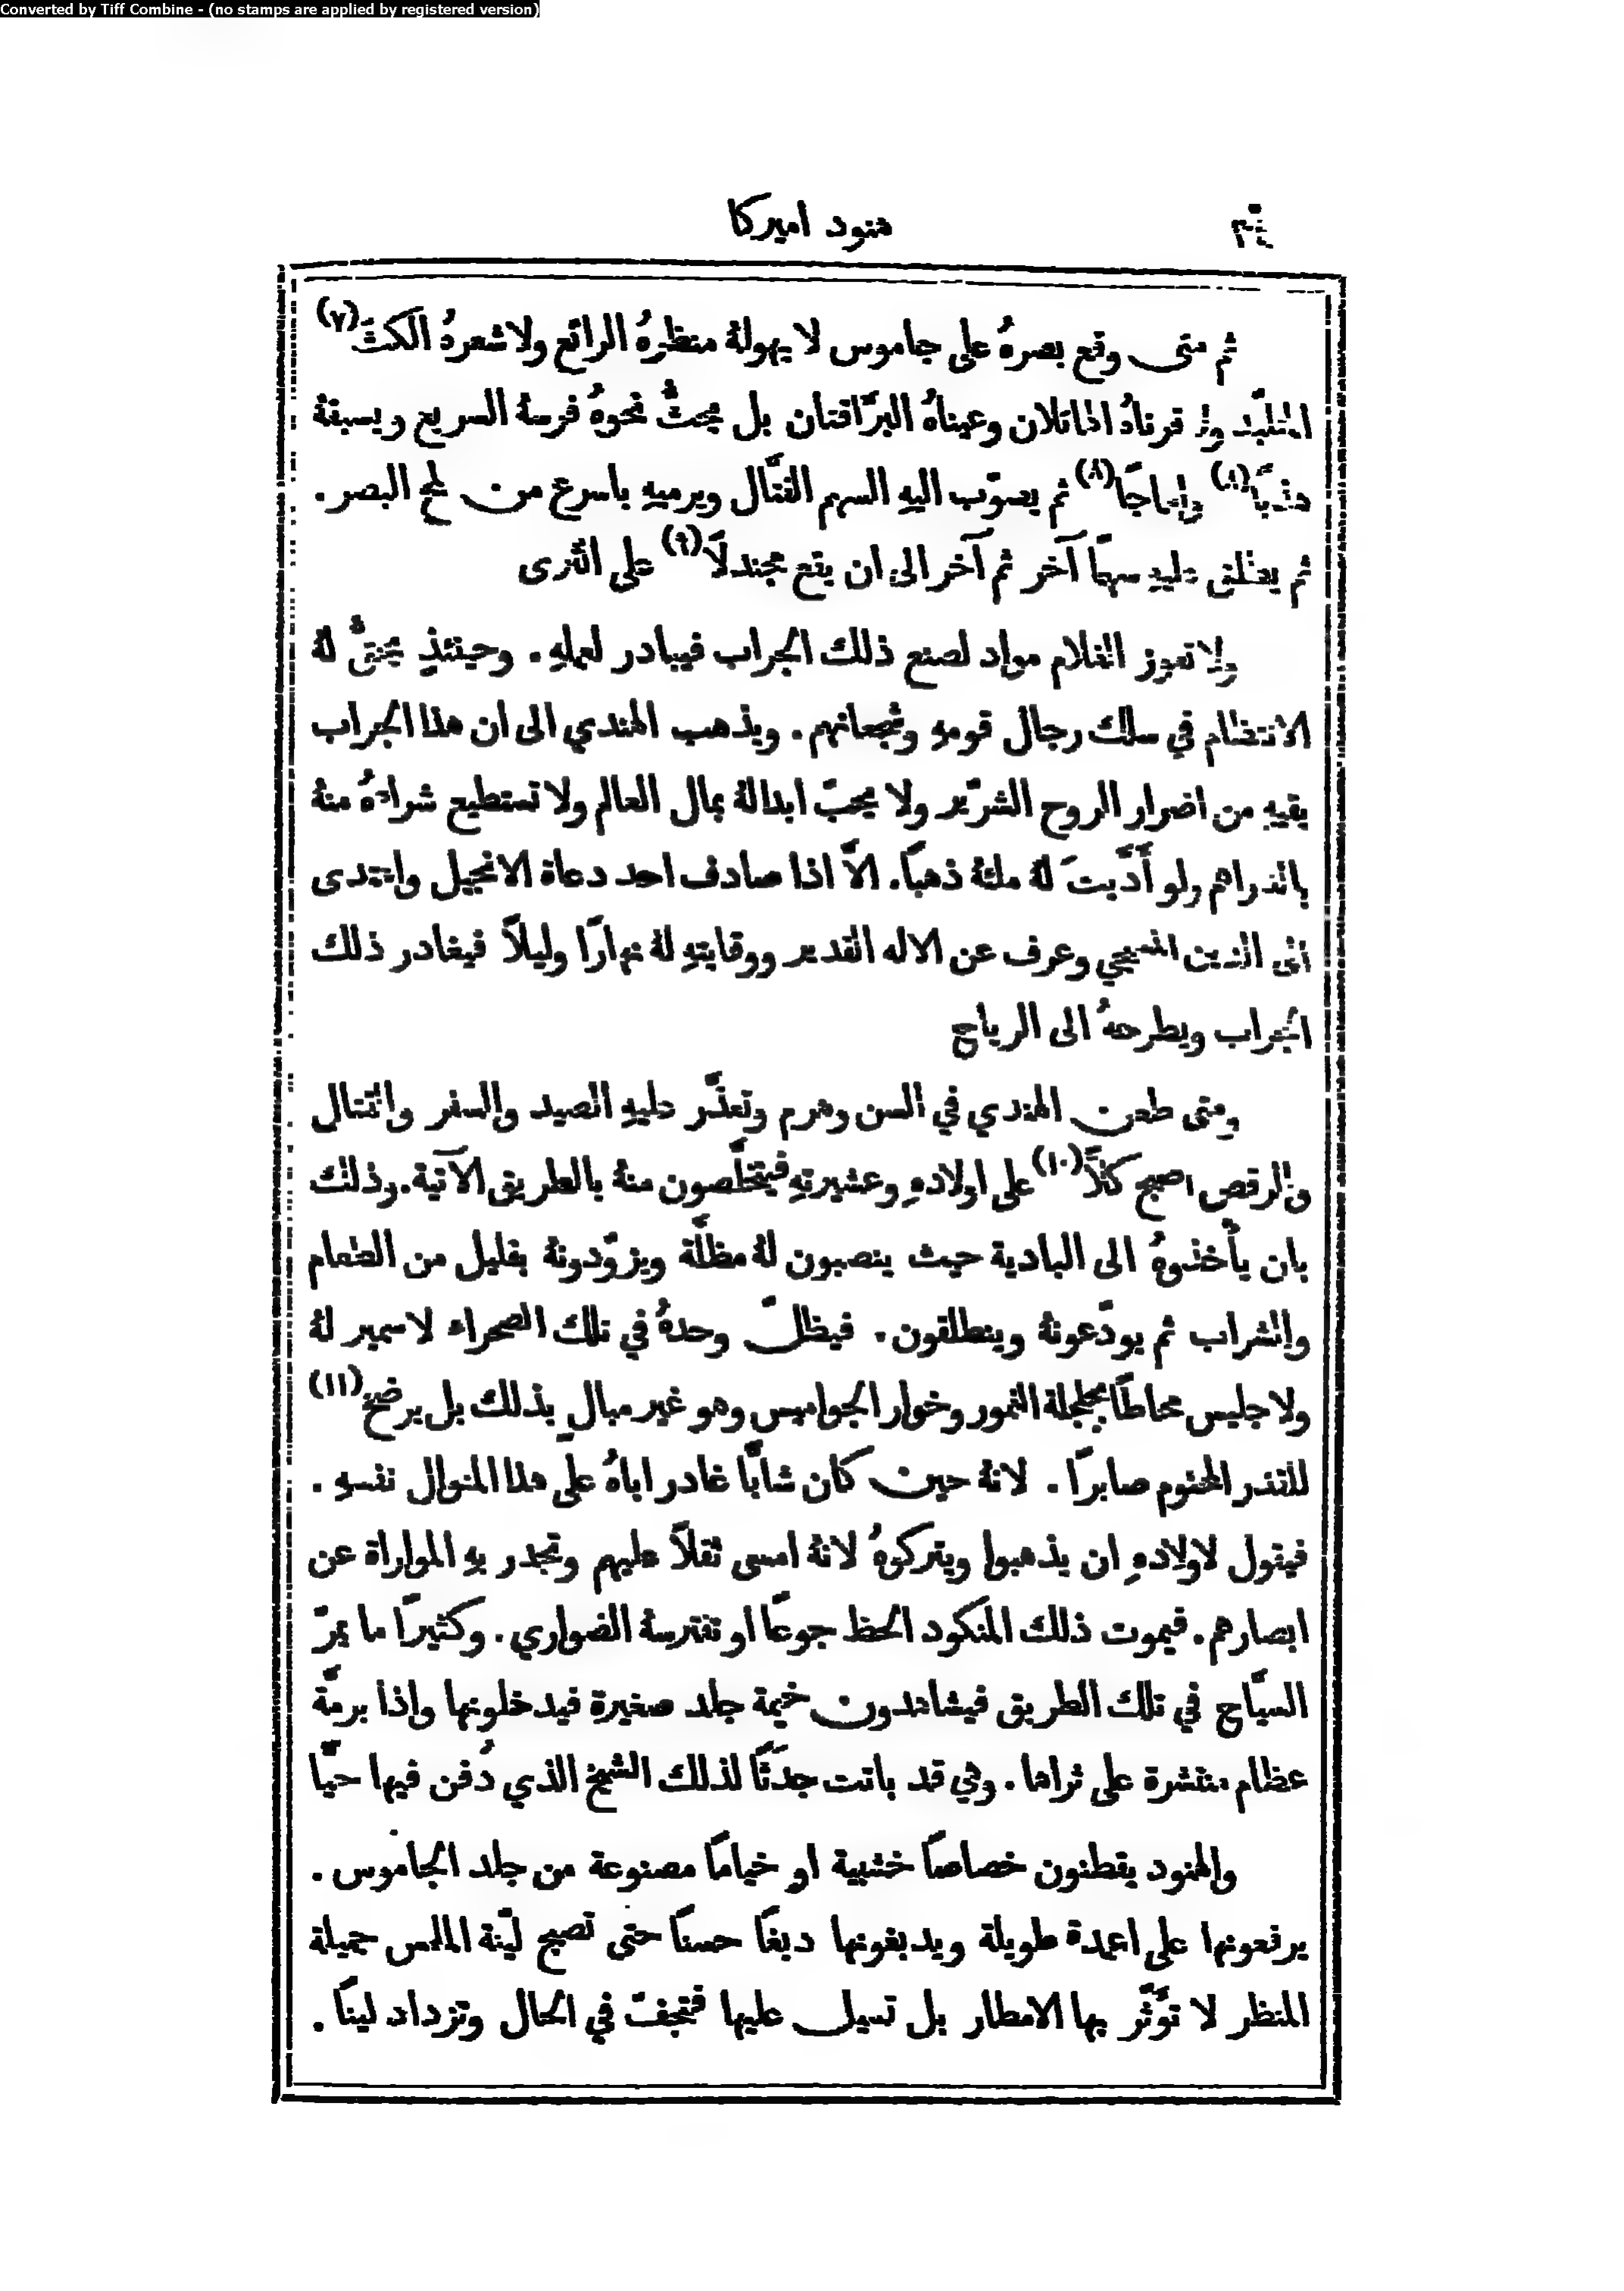 Converted by Tiff Combine - (no stamps are applied by registered version)
هنود اميركا
ثم متى وقع بصرهُ على جاموس لا يهولهُ منظرهُ الرائع ولا شعرهُ الكثّ(٧)
المتلبّد ولا قرناهُ الهائلان وعيناهُ البرّاقتان بل يحثُّ نحوهُ فرسهُ السريع ويسبقهُ
ثم يصوّب اليهِ السهم القتّال ويرميهِ باسرع من لمح البصر.
ثم يطلق عليهِ سهمًا آخر ثم آخر الى ان يقع مجندلًا(٩) على الثرى
ولا تعوز الغلام مواد لصنع ذلك الجراب فيبادر لعملهِ. وحينئذٍ يحقُّ لهُ
الانتظام في سلك رجال قومهِ وشجعانهم. ويذهب الهندي الى ان هذا الجراب
يقيهِ من اضرار الروح الشرّير ولا يحبّ ابدالهُ بمال العالم ولا تستطيع شراءهُ منهُ
بالدراهم ولو أدَّيتَ لهُ ملئهُ ذهبًا. الاَّ اذا صادف احد دعاة الانجيل واهتدى
الى الدين المسيحي وعرف عن الاله القدير ووقايتهِ لهُ نهارًا وليلًا فيغادر ذلك
الجراب ويطرحهُ الى الرياح
ومتى طعن الهندي في السن وهرم وتعذَّر عليهِ الصيد والسفر والقتال
والرقص اصبح كَلًّا(١٠) على اولادهِ وعشيرتهِ فيتخلَّصون منهُ بالطريق الآتية. وذلك
بان يأخذوهُ الى البادية حيث ينصبون لهُ مظلَّة ويزوّدونهُ بقليل من الطعام
والشراب ثم يودّعونهُ وينطلقون. فيظلّ وحدهُ في تلك الصحراء لا سمير لهُ
ولا جليس محاطًا بجلجلة النمور وخوار الجواميس وهو غير مبالٍ بذلك بل يرضخ(١١)
للقدر المحتوم صابرًا. لانهُ حين كان شابًّا غادر اباهُ على هذا المنوال نفسهِ.
فيقول لاولادهِ ان يذهبوا ويتركوهُ لانهُ امسى ثقلًا عليهم وتجدر بهِ المواراة عن
ابصارهم. فيموت ذلك المنكود الحظ جوعًا او تفترسهُ الضواري. وكثيرًا ما يمرّ
السيَّاح في تلك الطريق فيشاهدون خيمة جلد صغيرة فيدخلونها واذا برمَّة
عظام منتشرة على ثراها. وهي قد باتت جدثًا لذلك الشيخ الذي دُفن فيها حيًّا
والهنود يقطنون خصاصًا خشبية او خيامًا مصنوعة من جلد الجاموس.
يرفعونها على اعمدة طويلة ويدبغونها دبغًا حسنًا حتى تصبح ليّنة الملمس جميلة
المنظر لا تؤثّر بها الامطار بل تسيل عليها فتجفّ في الحال وتزداد لينًا.